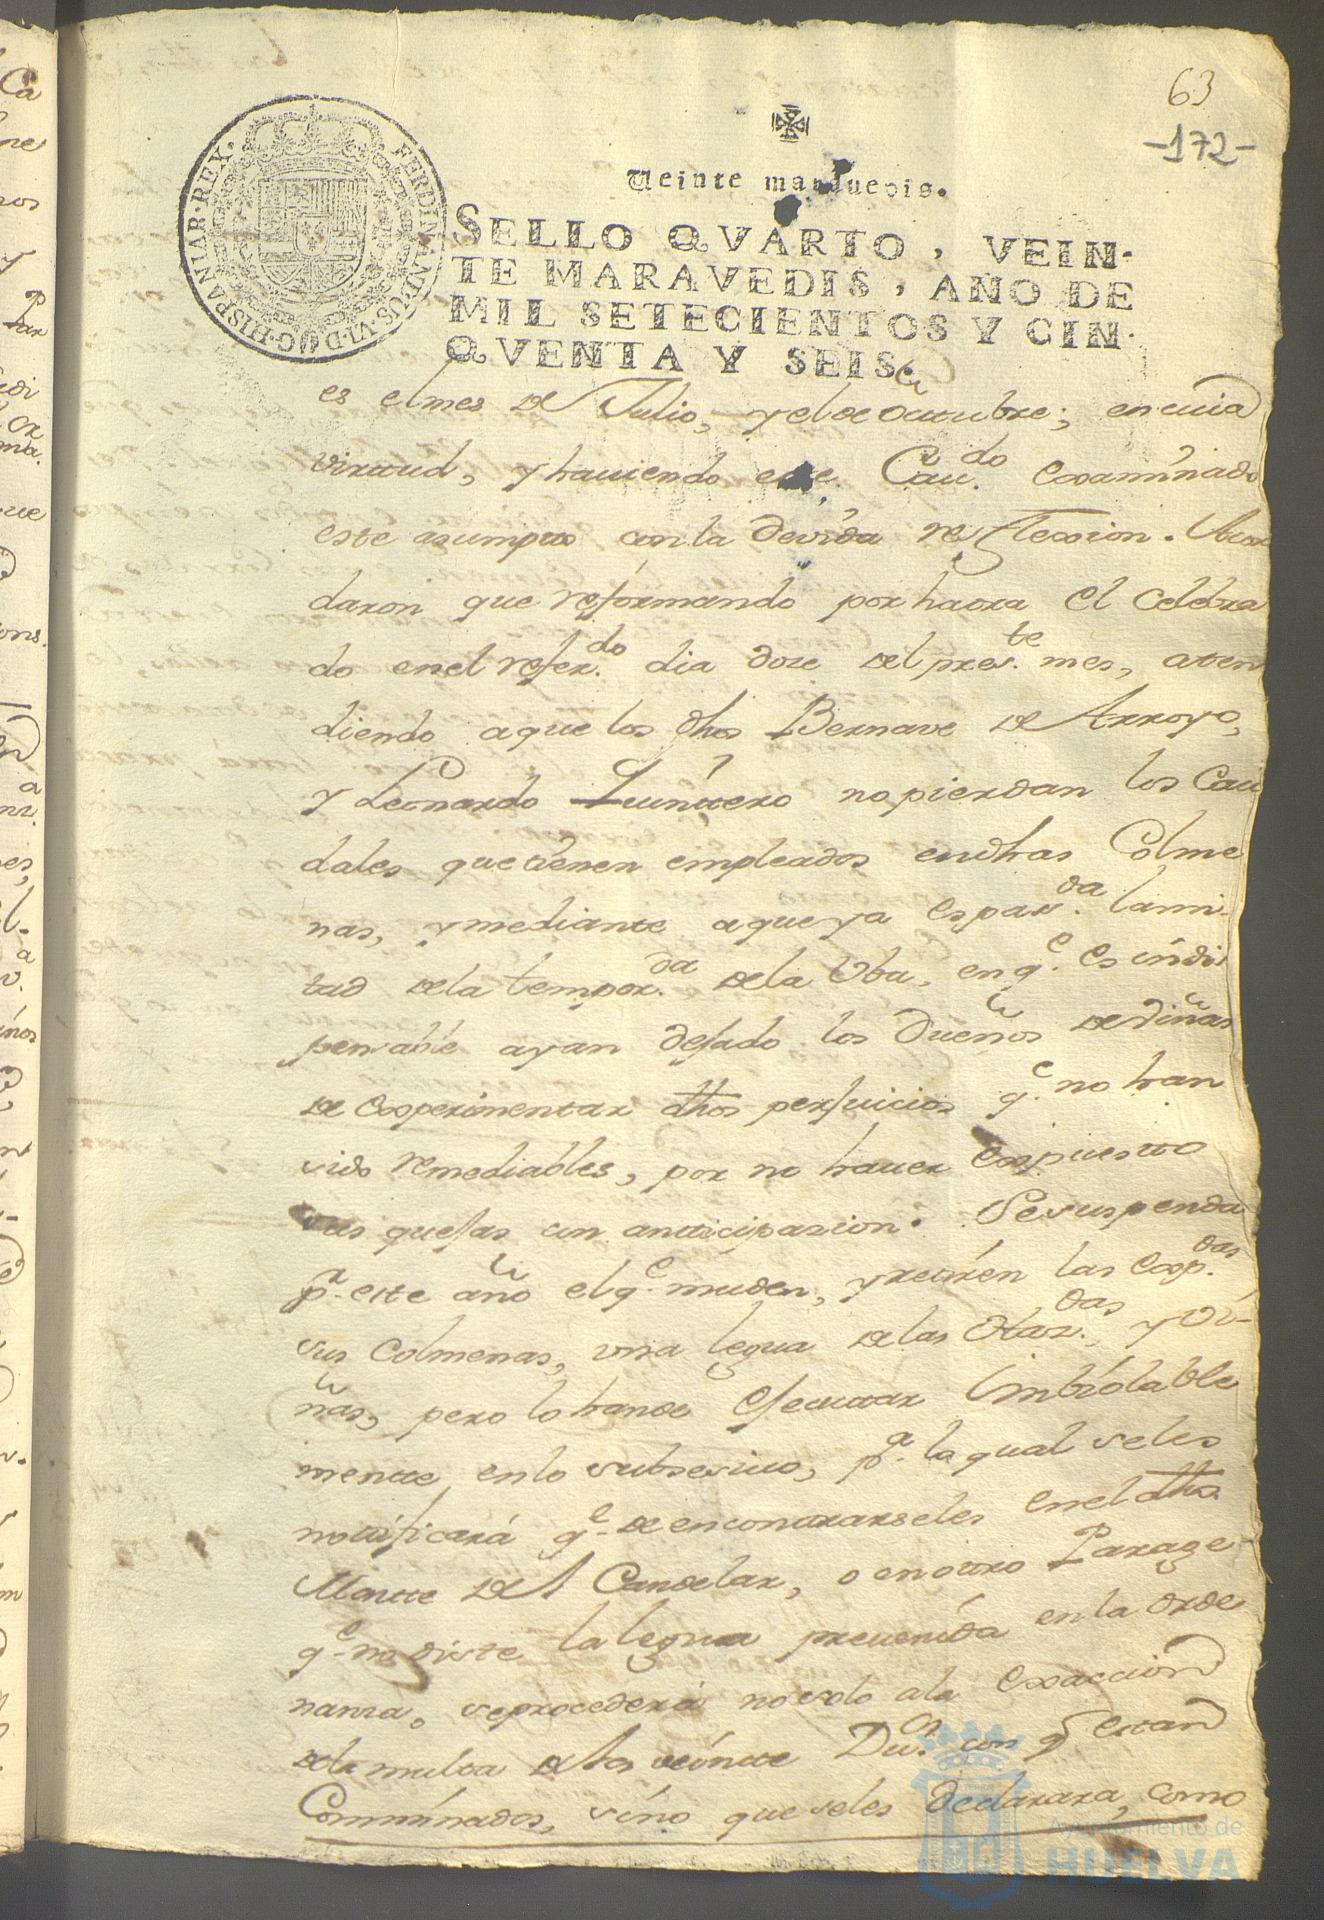 63
-172-
Veinte maravedis.
SELLO QVARTO, VEIN-
TE MARAVEDIS, AÑO DE
MIL SETECIENTOS Y CIN-
QVENTA Y SEIS.
FERDINANDUS·VI·D·G·HISPANIAR·REX·
es el mes de Julio, y el de Octubre; en cuia
virtud, y haviendo este Cav.do examinado
este asumpto con la devida reflexion. Acor
daron que reformando por haora el celebra
do en el refer.do dia doze del pres.te mes, aten
diendo a que los dhos Bernave de Arroyo,
y Leonardo Quintero no pierdan los Cau
dales que tienen empleados en dhas Colme
nas, y mediante a que ya es pas.da la mi-
tad de la tempor.da de la Vba, en q.e es indis
pensable ayan dejado los Dueños de Viñas
de experimentar dhos perjuicios q.e no han
sido remediables, por no haver expuesto
sus quejas con anticipazion. Se suspenda
p.r este año el q.e muden, y retiren las exp.das
sus Colmenas, una legua de las Otaz.das, y Vi-
ñas, pero lo han de ejecutar imbiolable
mente en lo subsesivo, p.a lo qual se les
notificará q.e de encontrarseles en el dho
Monte de el Candelar, o en otro Parage
q.e no diste la legua prevenida en la orde
nanza, se procederá no solo a la exaccion
de la multa de los veinte Du.os con q.e estan
Comminados, sino que se les declarara, como
Ayuntamiento de
HUELVA